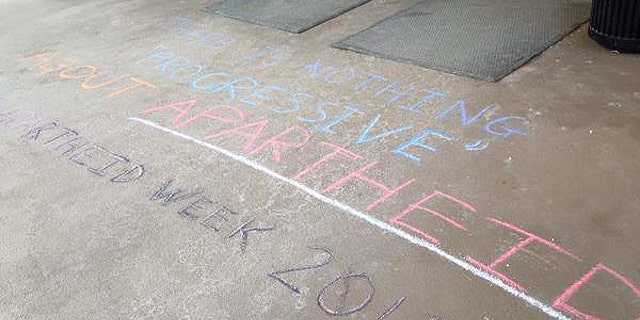 THERE IS NOTHING
"PROGRESSIVE"
ABOUT APARTHEID
APARTHEID WEEK 201